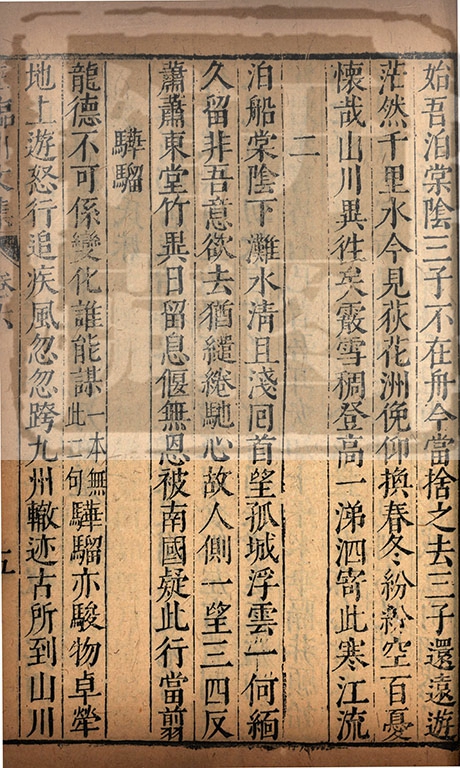 始吾泊棠陰三子不在舟今當捨之去三子還遠遊
茫然千里水今見荻花洲俛仰換春冬紛紛空百憂
懷哉山川異往矣霰雪稠登高一涕泗寄此寒江流
二
泊船棠陰下灘水清且淺回首望孤城浮雲一何緬
久留非吾意欲去猶繾綣馳心故人側一望三四反
蕭蕭東堂竹異日留息偃無恩被南國疑此行當翦
驊騮
龍德不可係變化誰能謀一本無此二句驊騮亦駿物卓犖
地上遊怒行追疾風忽忽跨九州轍迹古所到山川
臨川文集 卷六 五